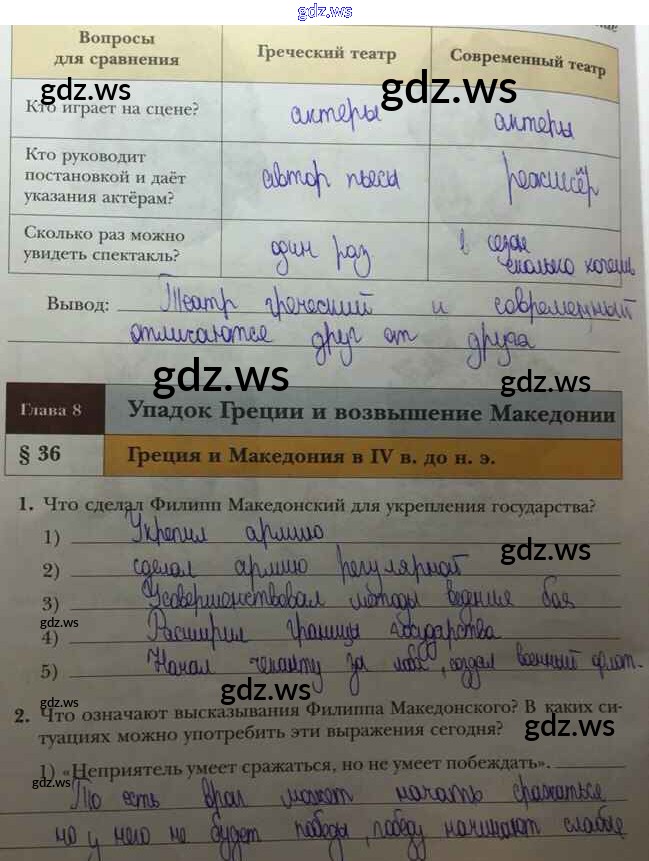 gdz.ws
Вопросы для сравнения Греческий театр Современный театр
gdz.ws gdz.ws
Кто играет на сцене? актеры актеры
Кто руководит постановкой и даёт указания актёрам? автор пьесы режиссёр
Сколько раз можно увидеть спектакль? один раз в сезон сколько хочешь
Вывод: Театр греческий и современный
отличаются друг от друга
gdz.ws gdz.ws
Глава 8 Упадок Греции и возвышение Македонии
§ 36 Греция и Македония в IV в. до н. э.
1. Что сделал Филипп Македонский для укрепления государства?
1) Укрепил армию
gdz.ws
2) сделал армию регулярной
3) Усовершенствовал методы ведения боя
gdz.ws
4) Расширил границы государства
5) Начал чеканту за, создал военный флот.
gdz.ws gdz.ws
2. Что означают высказывания Филиппа Македонского? В каких си-
gdz.ws
туациях можно употребить эти выражения сегодня?
1) «Неприятель умеет сражаться, но не умеет побеждать».
gdz.ws
То есть враг может начать сражаться
но у него не будет победы, победу начинают слабые